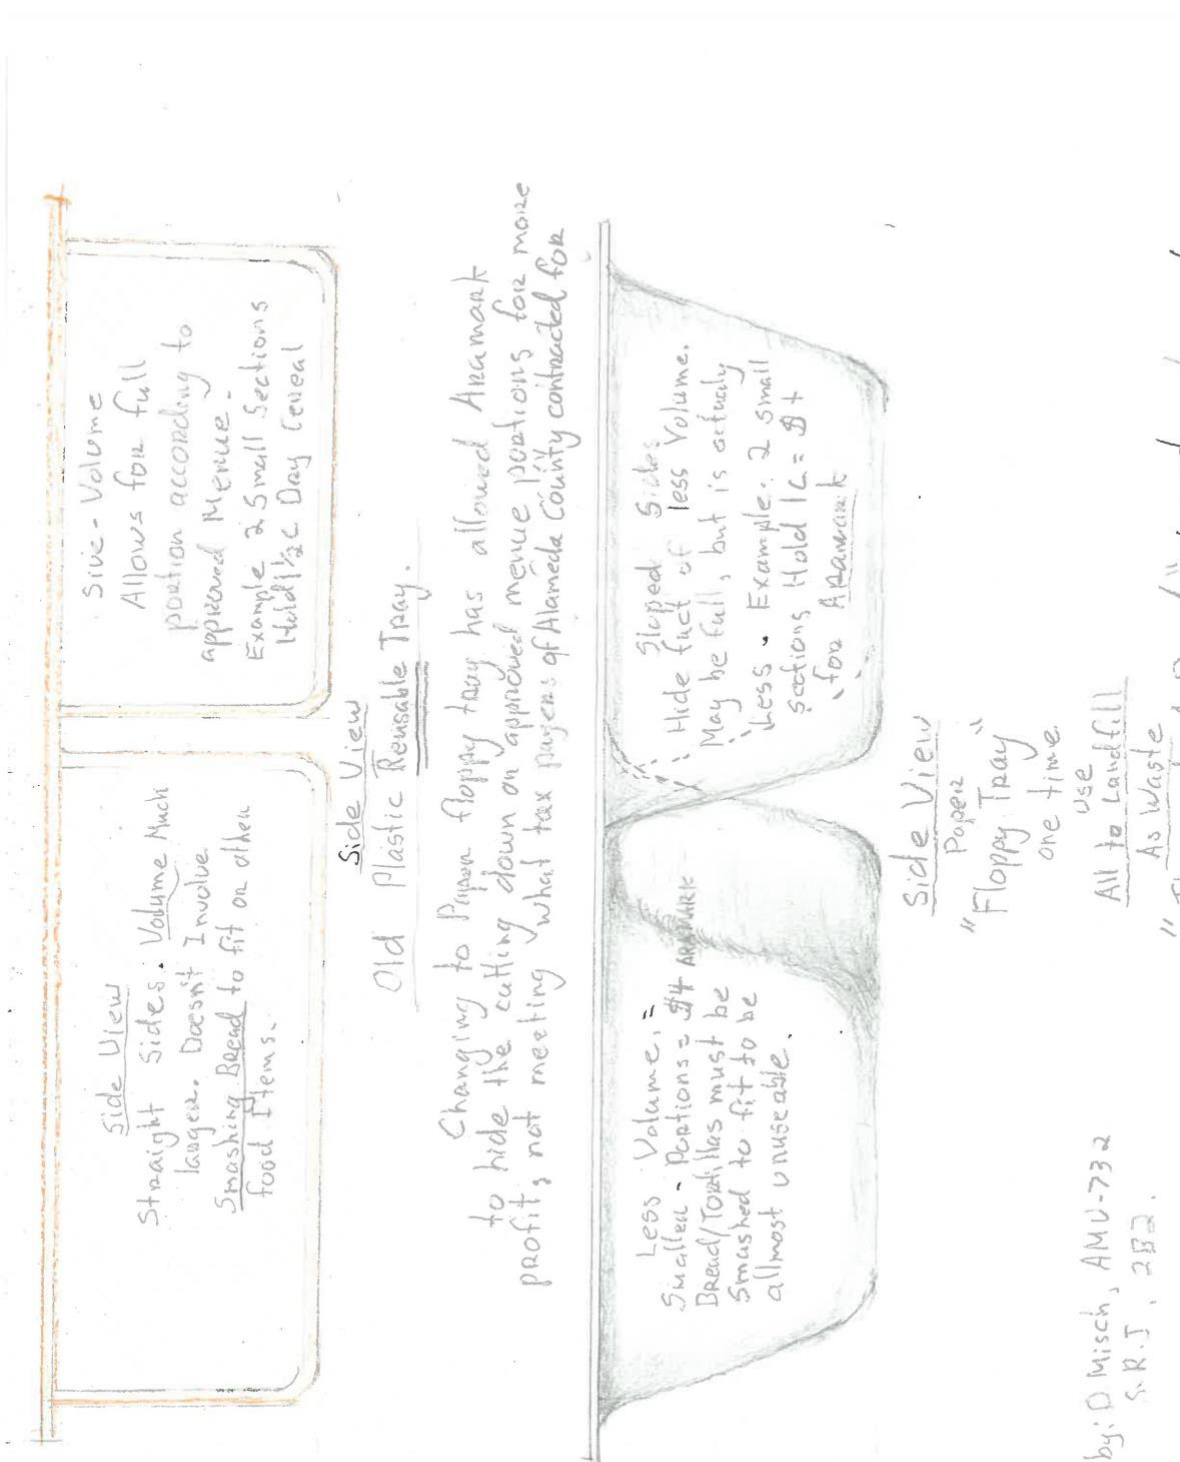 Side View
Straight Sides. Volume Much
larger. Doesn't Involve
Smashing Bread to fit or other
food Items.
Sive - Volume
Allows for full
portion according to
approved Menue -
Example 2 Small Sections
Hold 1½ C Dry Cereal
Side View
Old Plastic Reusable Tray.
Changing to Paper floppy tray has allowed Aramark
to hide the cutting down on approved menue portions for more
profit, not meeting what tax payers of Alameda County contracted for
Less Volume, =
Smaller - Portions = $4 ARAMARK
Bread/Tortillas must be
Smashed to fit to be
allmost unuseable.
Sloped Sides
Hide fact of less Volume.
May be full, but is actualy
Less. Example: 2 small
sections Hold 1C = $+
for Aramark
Side View
Paper
"Floppy Tray"
one time
use
All to Landfill
As Waste
by: D Misch, AMU-732
S.R.J. 2B2.